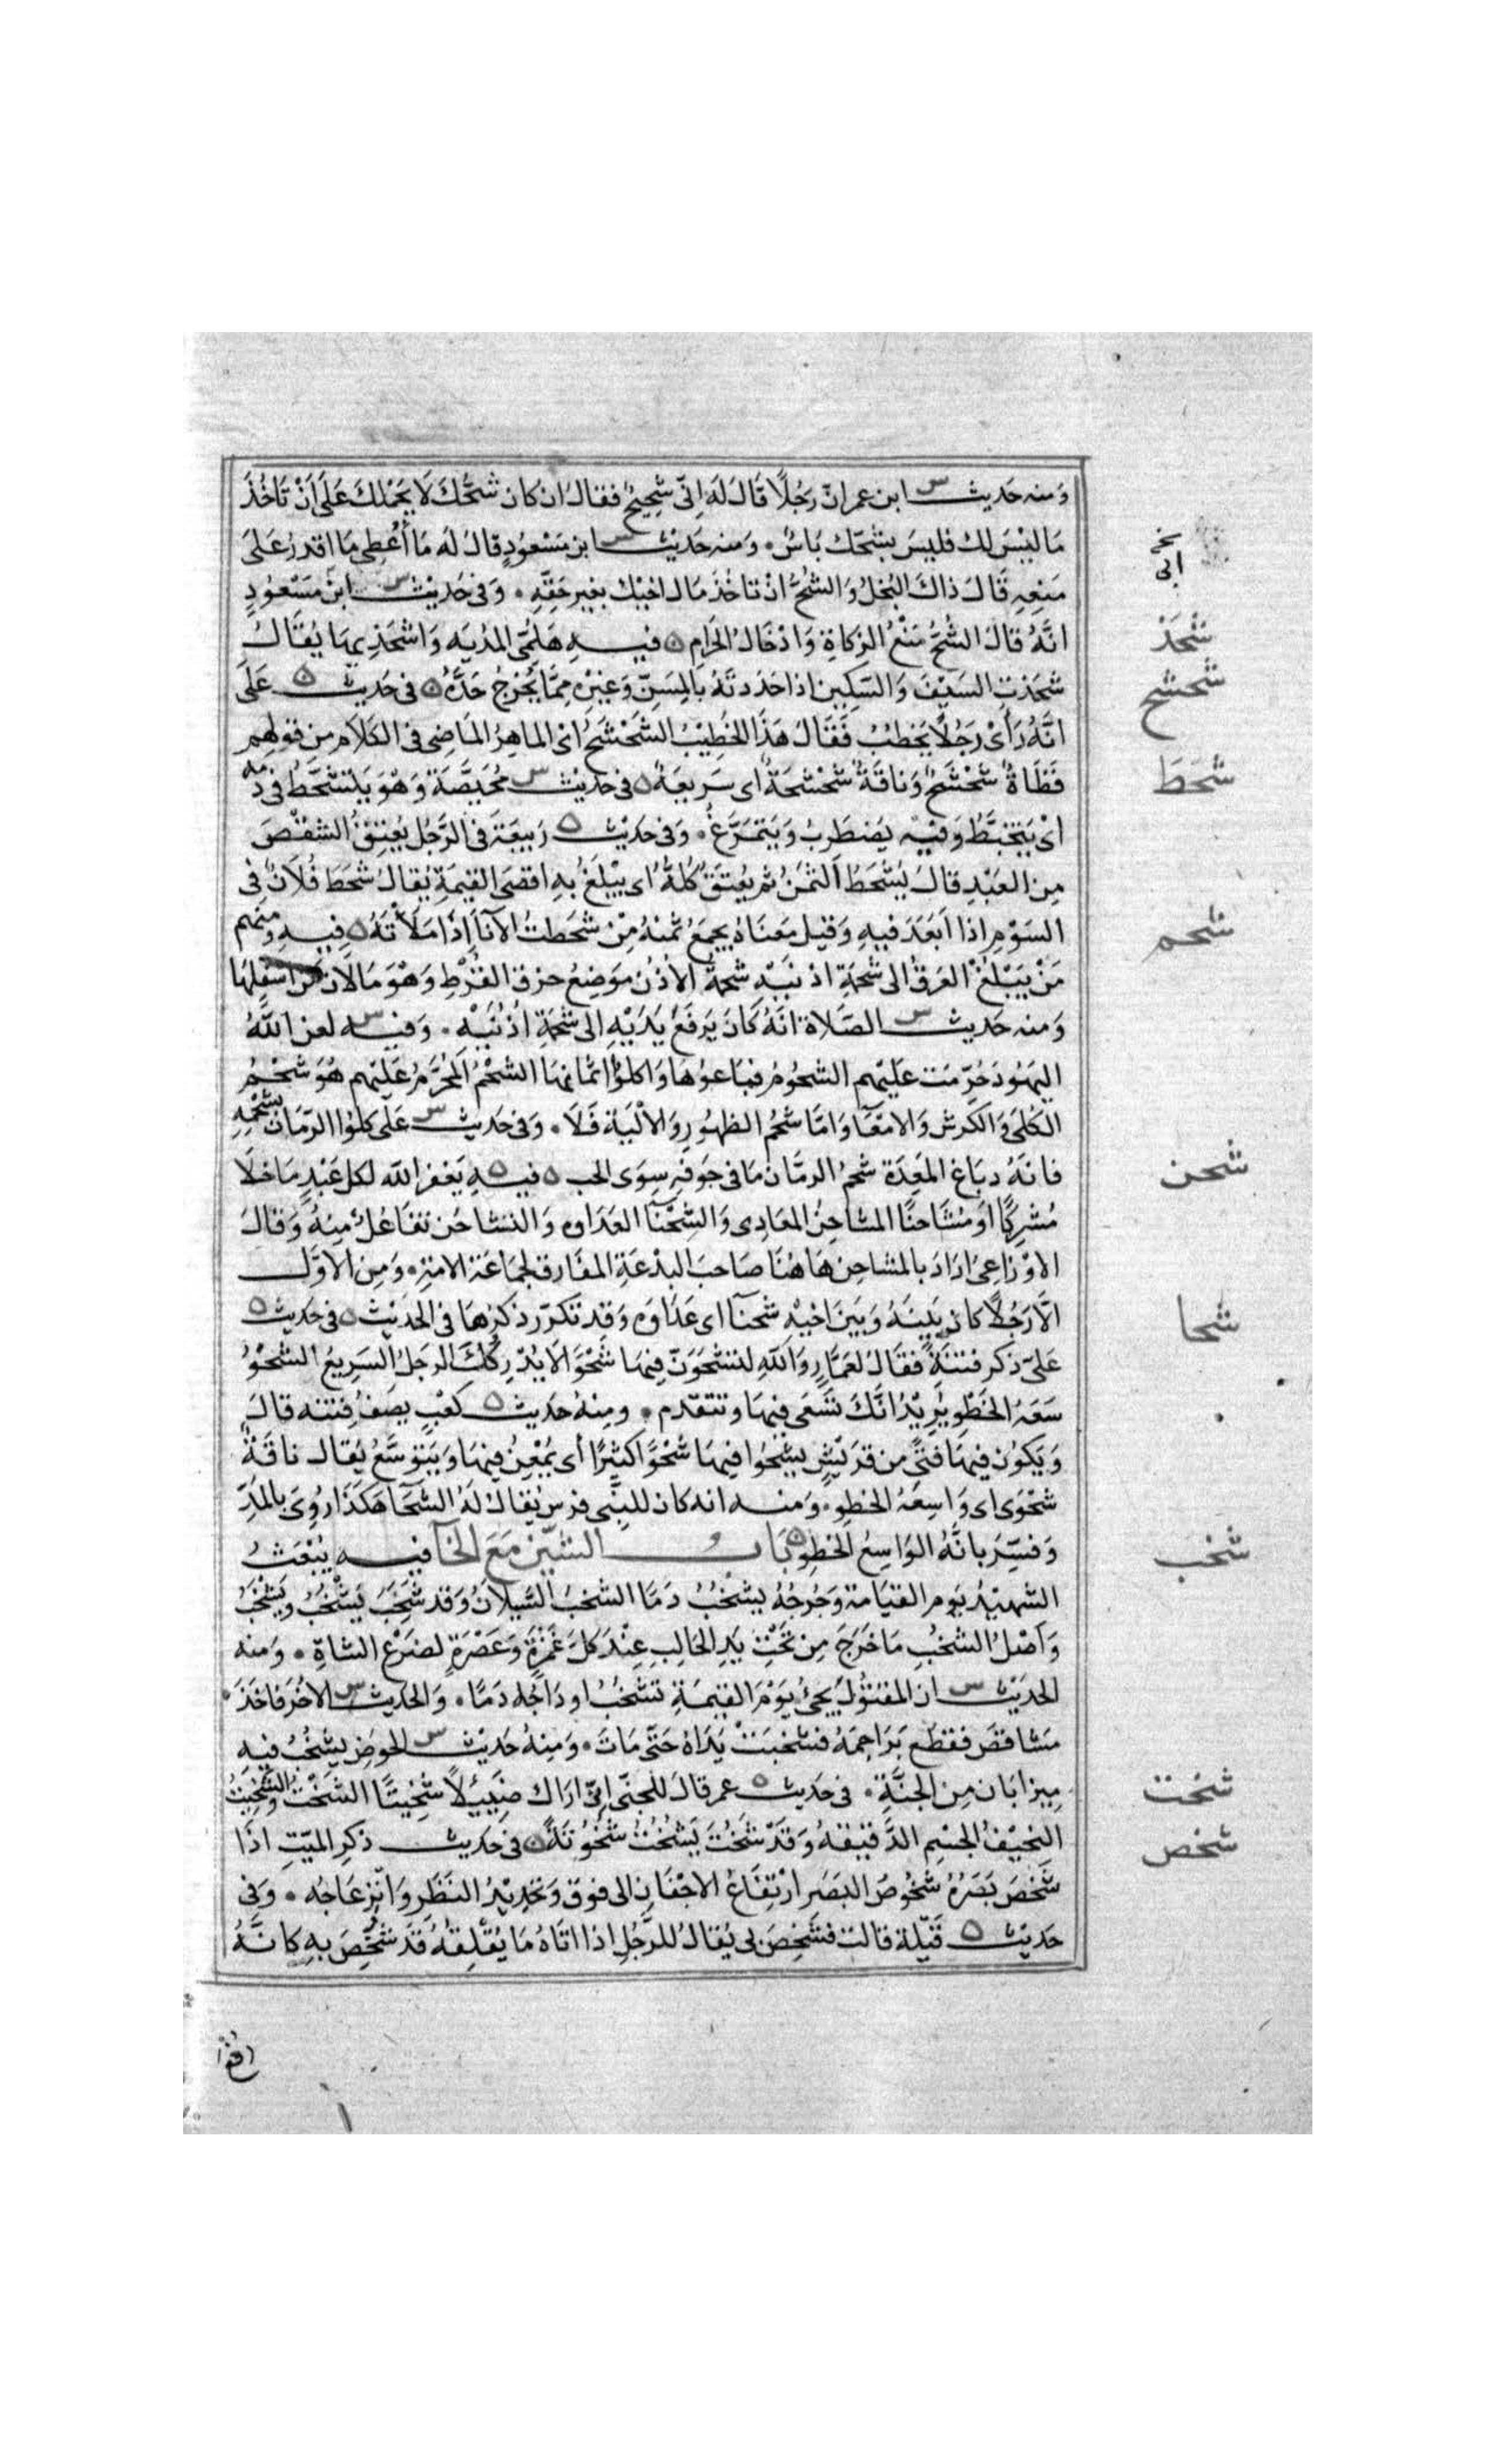 ومنه حديث س ابن عمر ان رجلا قال له اني شحيح فقال ان كان شحك لا يحملك على ان تاخذ
ما ليس لك فليس بشحك باس ومنه حديث س ابن مسعود قال له ما أعطى ما اقدر على
منعه قال ذاك البخل والشح ان تاخذ مال اخيك بغير حقه وفى حديث س ابن مسعود
انه قال الشح منع الزكاة وادخال الحرام ه فيه هلمى المدية واشحذيها يقال
شحذت السيف والسكين اذا حددته بالمسن وغيره مما يخرج حده ه فى حديث ه على
انه رأى رجلا يخطب فقال هذا الخطيب الشحشح اى الماهر الماضى فى الكلام من قولهم
قطاة شحشح وناقة شحشحة اى سريعة ه فى حديث س محيصة وهو يتشحط فى دمه
اى يتخبط وفيه يضطرب ويتمرغ وفى حديث ه ربيعة فى الرجل يعتق الشقص
من العبد قال يشحط الثمن ثم يعتق كله اى يبلغ به اقصى القيمة يقال شحط فلان فى
السوم اذا ابعد فيه وقيل معناه يجمع ثمنه من شحطت الآنا اذا ملأته ه فيه ومنهم
من يبلغ العرق الى شحمة اذنيه شحمة الاذن موضع خرق القرط وهو ما لان من اسفلها
ومنه حديث س الصلاة انه كان يرفع يديه الى شحمة اذنيه وفيه س لعن الله
اليهود حرمت عليهم الشحوم فباعوها واكلوا اثمانها الشحم المحرم عليهم هو شحم
الكلى والكرش والامعآ واما شحم الظهور والالية فلا وفى حديث س على كلوا الرمان بشحمه
فانه دباغ المعدة شحم الرمان ما فى جوفه سوى الحب ه فيه ه يغفر الله لكل عبد ما خلا
مشركا او مشاحنا المشاحن المعادى والشحنآ العداوه والتشاحن تفاعل منه وقال
الاوزاعى اراد بالمشاحن هاهنا صاحب البدعة المفارق لجماعة الامة ومن الاول
الا رجلا كان بينه وبين اخيه شحنآ اى عداوه وقد تكرر ذكرها فى الحديث ه فى حديث ه
على ذكر فتنة فقال لعمار والله لتشحون فيها شحوا لا يدركك الرجل السريع الشحو
سعة الخطو يريد انك تسعى فيها وتتقدم ومنه حديث ه كعب يصف فتنه قال
ويكون فيها فتى من قريش يشحوا فيها شحوا كثيرا أى يمعن فيها ويتوسع يقال ناقة
شحوى اى واسعة الخطو ومنه انه كان للنبى فرس يقال له الشحآ هكذا روى بالمد
وفسر بانه الواسع الخطو ه باب الشين مع الخآ فيه يبعث
الشهيد يوم القيامة وجرحه يشخب دما الشخب السيلان وقد شخب يشخب ويشخب
واصل الشخب ما خرج من تحت يد الحالب عند كل غمزة وعصرة لضرع الشاة ومنه
الحديث س ان المقتول يجئ يوم القيمة تشخب اوداجه دما والحديث س الاخر فاخذ
مشاقص فقطع براجمه فشخبت يداه حتى مات ومنه حديث س الحوض يشخب فيه
ميزابان من الجنة فى حديث ه عمر قال للجنى انى اراك ضئيلا شخيتا الشخت والشخيت
النحيف الجسم الدقيقه وقد شخت يشخت شخوتة ه فى حديث ذكر الميت اذا
شخص بصره شخوص البصر ارتفاع الاجفان الى فوق وتحديد النظر وانزعاجه وفى
حديث ه قيلة قالت فشخص بى يقال للرجل اذا اتاه ما يقلقه قد شخص به كانه
شحذ
شحشح
شحط
شحم
شحن
شحا
شخب
شخت
شخص